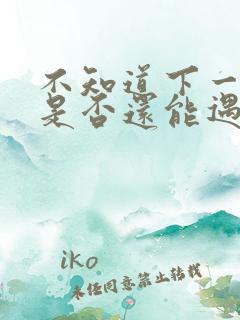 不知道下一
是否還能遇
iko
未经同意禁止转载